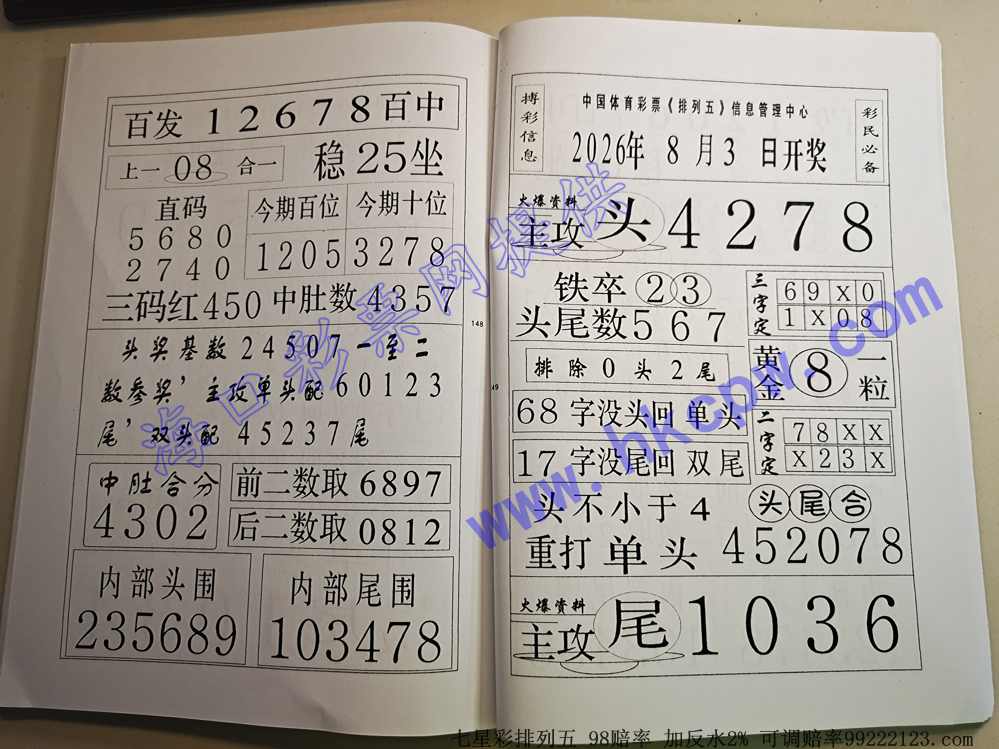 百发 12678 百中
上一 08 合一
稳 25 坐
直码
5680
2740
今期百位 今期十位
1205 3278
三码红 450 中肚数 4357
头奖基数 24507 一至二
数参奖’主攻单头配 60123
尾’双头配 45237 尾
中肚合分
4302
前二数取 6897
后二数取 0812
内部头围
235689
内部尾围
103478
148
搏彩信息
中国体育彩票《排列五》信息管理中心
2026年 8 月3 日开奖
彩民必备
火爆资料
主攻 头 4278
铁卒 23
头尾数 567
三字定
69X0
1X08
排除 0 头 2 尾
黄金 8 一粒
68 字没头回 单头
17 字没尾回 双尾
二字定
78XX
X23X
头不小于 4
头尾合
重打 单 头 452078
火爆资料
主攻 尾 1036
49
海口彩票网提供
www.hkcpw.com
七星彩排列五 98赔率 加反水2% 可调赔率99222123.com